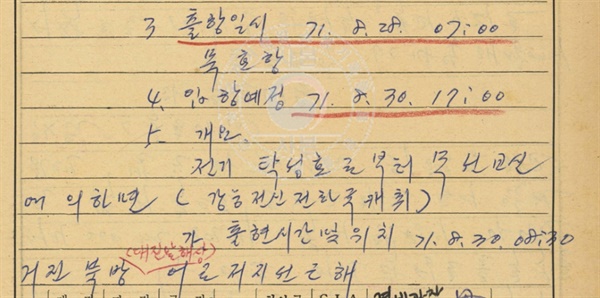 3 출항일시 71. 8. 28. 07:00
묵호항
4. 입항예정 71. 8. 30. 17:00
5. 개요
전기 탁성호로부터 무선교신
에 의하면 (강릉전신전화국 캐취)
가 출현시간및위치 71. 8. 30. 08:30
(대진앞해상)
거진 북방 어로저지선근해